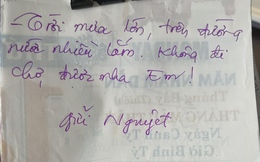 - Trời mưa lớn, trên đường
nước nhiều lắm. Không đi
chợ được nha Em!
Gửi Nguyệt
NĂM NHÂM DẦN
Tháng Bảy
Ngày Canh Tý
Giờ Bính Tý